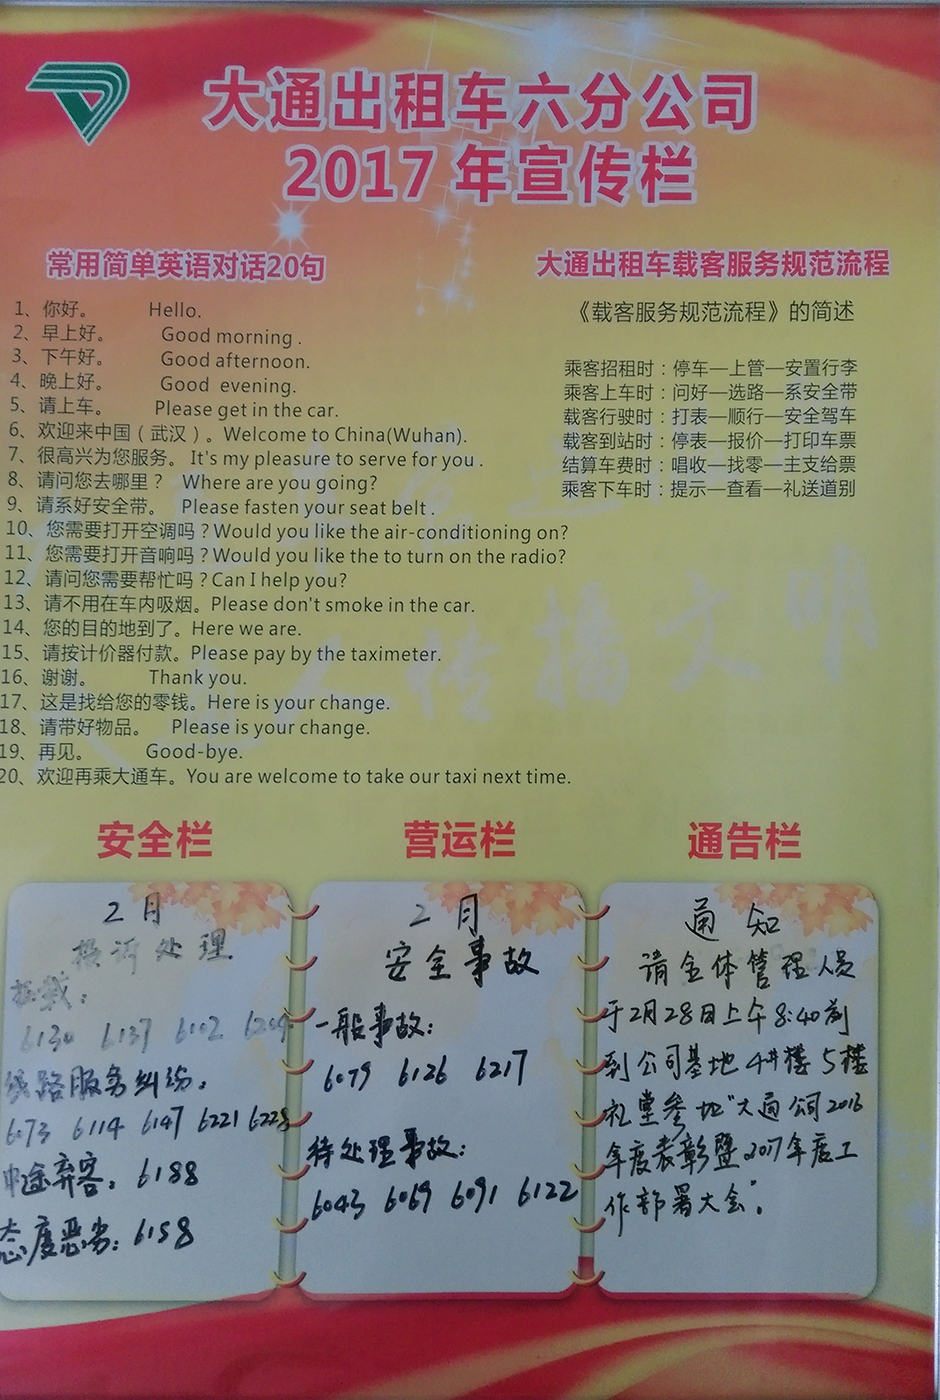 大通出租车六分公司
2017年宣传栏
常用简单英语对话20句
1、你好。 Hello.
2、早上好。 Good morning .
3、下午好。 Good afternoon.
4、晚上好。 Good evening.
5、请上车。 Please get in the car.
6、欢迎来中国（武汉）。Welcome to China(Wuhan).
7、很高兴为您服务。It's my pleasure to serve for you .
8、请问您去哪里？ Where are you going?
9、请系好安全带。 Please fasten your seat belt .
10、您需要打开空调吗？Would you like the air-conditioning on?
11、您需要打开音响吗？Would you like the to turn on the radio?
12、请问您需要帮忙吗？Can I help you?
13、请不用在车内吸烟。Please don't smoke in the car.
14、您的目的地到了。Here we are.
15、请按计价器付款。Please pay by the taximeter.
16、谢谢。 Thank you.
17、这是找给您的零钱。Here is your change.
18、请带好物品。 Please is your change.
19、再见。 Good-bye.
20、欢迎再乘大通车。You are welcome to take our taxi next time.
大通出租车载客服务规范流程
《载客服务规范流程》的简述
乘客招租时：停车—上管—安置行李
乘客上车时：问好—选路—系安全带
载客行驶时：打表—顺行—安全驾车
载客到站时：停表—报价—打印车票
结算车费时：唱收—找零—主支给票
乘客下车时：提示—查看—礼送道别
安全栏
2月
投诉处理
拒载：
6130 6137 6102 6209
线路服务纠纷：
6073 6114 6147 6221 6228
中途弃客：6188
态度恶劣：6158
营运栏
2月
安全事故
一般事故：
6079 6126 6217
待处理事故：
6043 6069 6091 6122
通告栏
通知
请全体管理人员
于2月28日上午8:40前
到公司基地4#楼5楼
礼堂参加"大通公司2016
年度表彰暨2017年度工
作部署大会"。